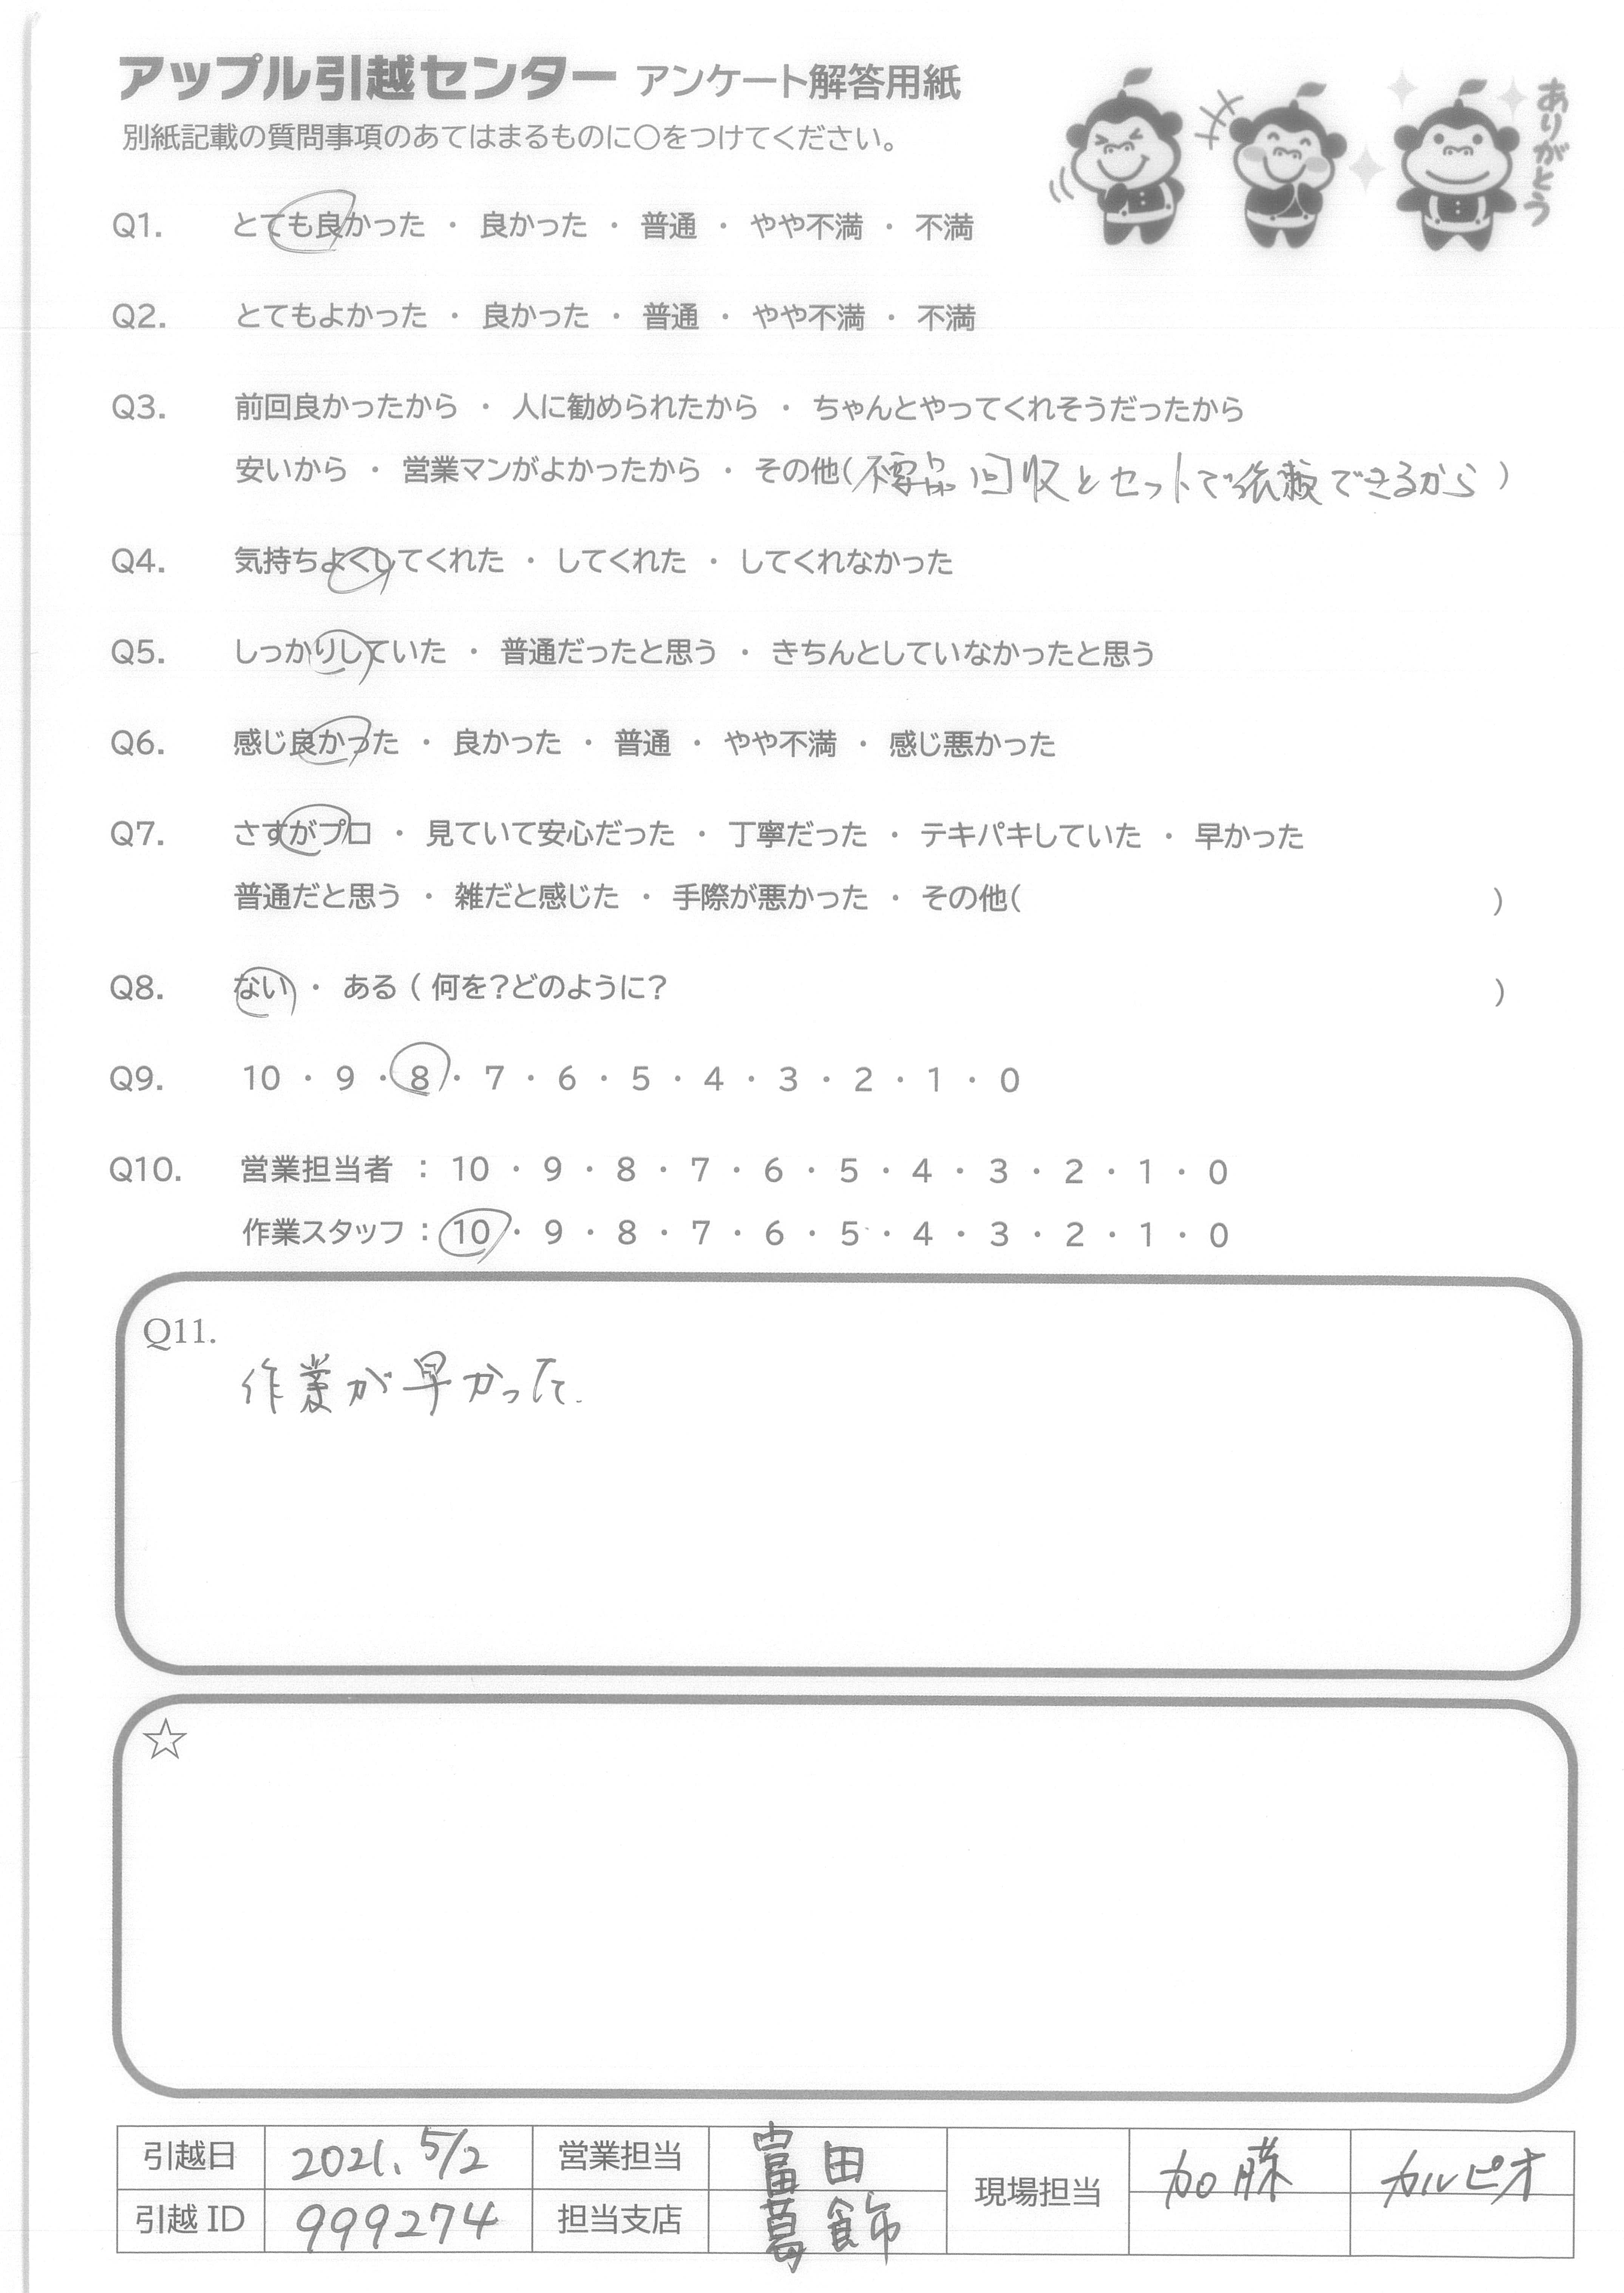 アップル引越センター アンケート解答用紙
別紙記載の質問事項のあてはまるものに○をつけてください。
ありがとう
Q1. とても良かった ・ 良かった ・ 普通 ・ やや不満 ・ 不満
Q2. とてもよかった ・ 良かった ・ 普通 ・ やや不満 ・ 不満
Q3. 前回良かったから ・ 人に勧められたから ・ ちゃんとやってくれそうだったから
安いから ・ 営業マンがよかったから ・ その他(不要品回収とセットで依頼できるから)
Q4. 気持ちよくしてくれた ・ してくれた ・ してくれなかった
Q5. しっかりしていた ・ 普通だったと思う ・ きちんとしていなかったと思う
Q6. 感じ良かった ・ 良かった ・ 普通 ・ やや不満 ・ 感じ悪かった
Q7. さすがプロ ・ 見ていて安心だった ・ 丁寧だった ・ テキパキしていた ・ 早かった
普通だと思う ・ 雑だと感じた ・ 手際が悪かった ・ その他( )
Q8. ない ・ ある ( 何を?どのように? )
Q9. 10 ・ 9 ・ 8 ・ 7 ・ 6 ・ 5 ・ 4 ・ 3 ・ 2 ・ 1 ・ 0
Q10. 営業担当者 : 10 ・ 9 ・ 8 ・ 7 ・ 6 ・ 5 ・ 4 ・ 3 ・ 2 ・ 1 ・ 0
作業スタッフ : 10 ・ 9 ・ 8 ・ 7 ・ 6 ・ 5 ・ 4 ・ 3 ・ 2 ・ 1 ・ 0
Q11.
作業が早かった.
☆
引越日 2021. 5/2 営業担当 富田 現場担当 加藤 カルピオ
引越 ID 999274 担当支店 葛飾